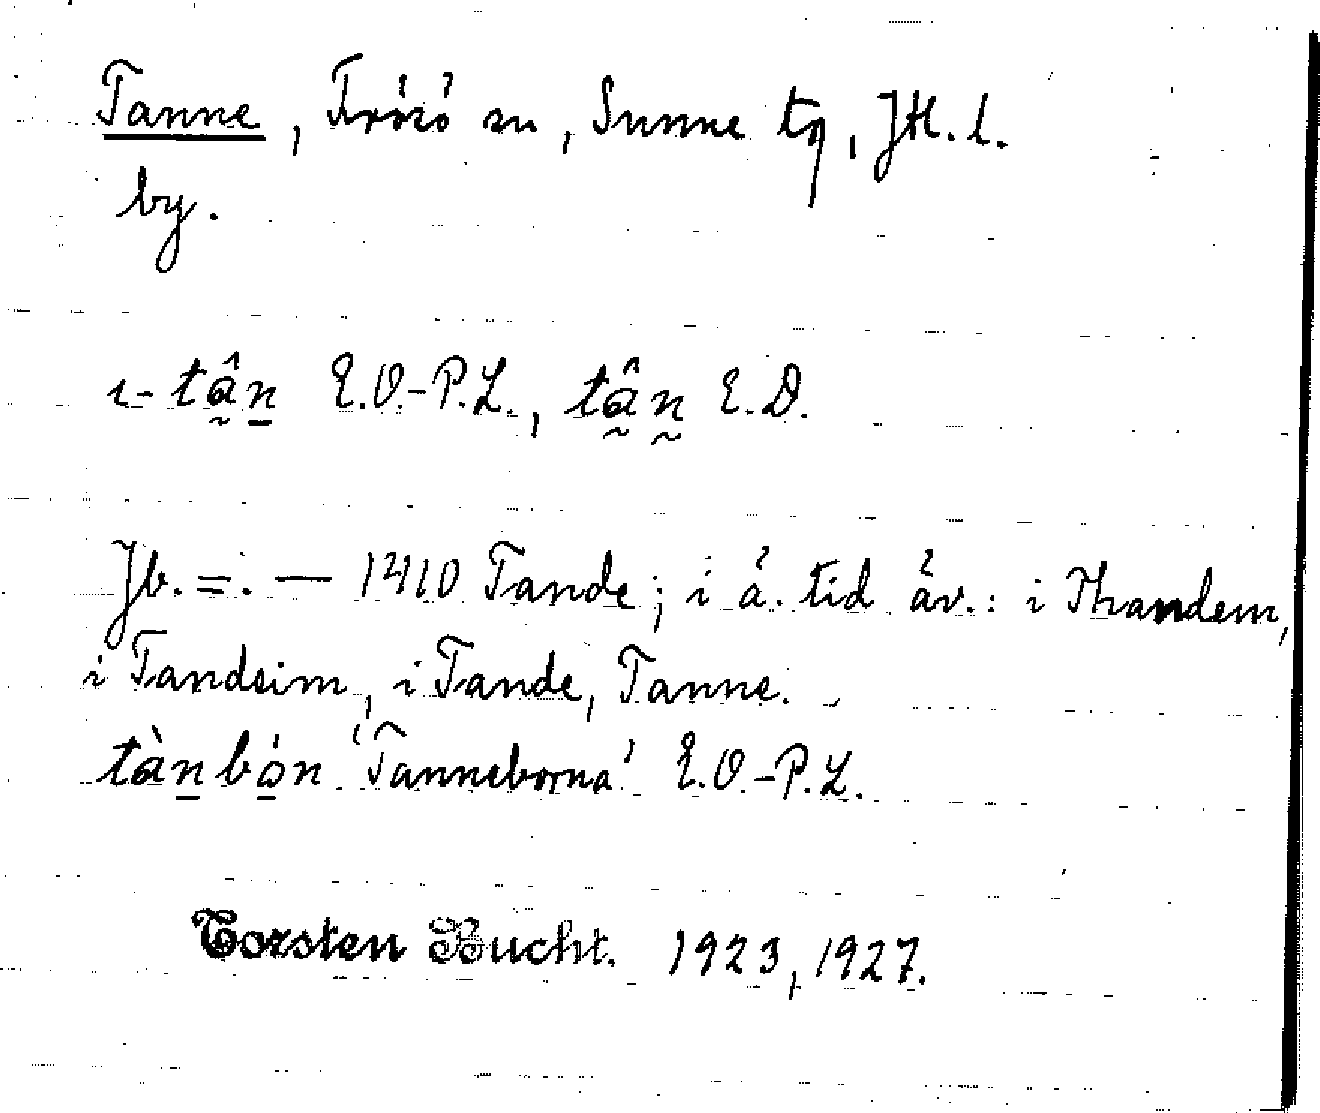 Tanne, Frösö sn, Sunne tg, Jtl. l.
by.
ɩ-tân̠ E.O.-P.L., tân̰ E.D.
Jb. =. — 1410 Tande; i ä. tid äv.: i Thandem,
i Tandeim, i Tande, Tanne.
tàn̠bo̠n 'Tanneborna' E.O.-P.L.
Torsten Bucht. 1923, 1927.